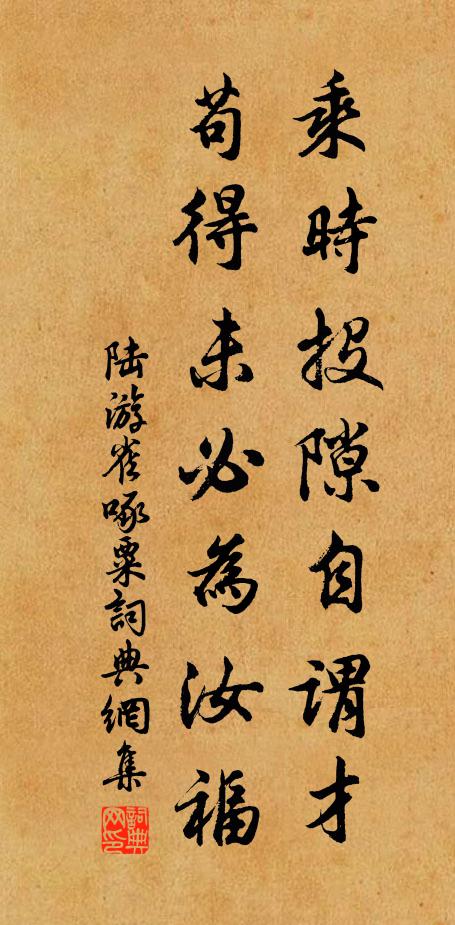 乘時投隙自謂才
苟得未必為汝福
陆游雀啄粟詞典網集
詞典网印